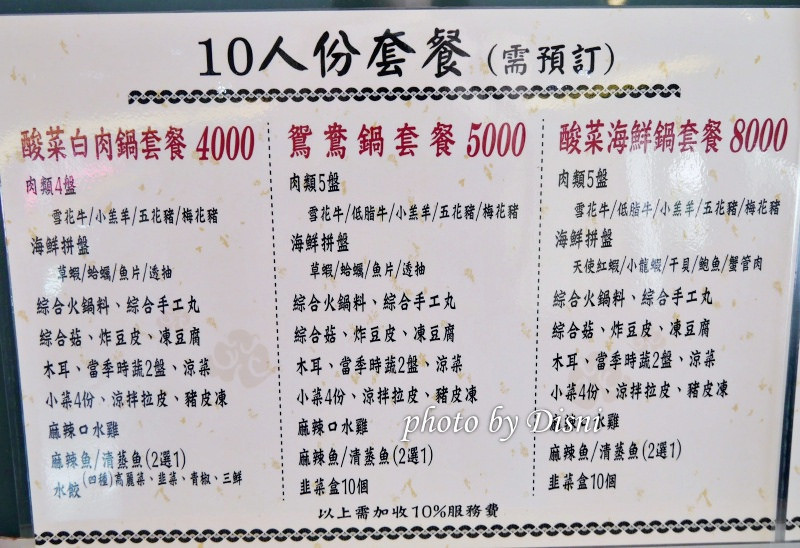 10人份套餐(需預訂)
酸菜白肉鍋套餐 4000
肉類4盤
雪花牛/小羔羊/五花豬/梅花豬
海鮮拼盤
草蝦/蛤蠣/魚片/透抽
綜合火鍋料、綜合手工丸
綜合菇、炸豆皮、凍豆腐
木耳、當季時蔬2盤、涼菜
小菜4份、涼拌拉皮、豬皮凍
麻辣口水雞
麻辣魚/清蒸魚(2選1)
水餃(四種)高麗菜、韭菜、青椒、三鮮
鴛鴦鍋套餐 5000
肉類5盤
雪花牛/低脂牛/小羔羊/五花豬/梅花豬
海鮮拼盤
草蝦/蛤蠣/魚片/透抽
綜合火鍋料、綜合手工丸
綜合菇、炸豆皮、凍豆腐
木耳、當季時蔬2盤、涼菜
小菜4份、涼拌拉皮、豬皮凍
麻辣口水雞
麻辣魚/清蒸魚(2選1)
韭菜盒10個
酸菜海鮮鍋套餐 8000
肉類5盤
雪花牛/低脂牛/小羔羊/五花豬/梅花豬
海鮮拼盤
天使紅蝦/小龍蝦/干貝/鮑魚/蟹管肉
綜合火鍋料、綜合手工丸
綜合菇、炸豆皮、凍豆腐
木耳、當季時蔬2盤、涼菜
小菜4份、涼拌拉皮、豬皮凍
麻辣口水雞
麻辣魚/清蒸魚(2選1)
韭菜盒10個
以上需加收10%服務費
photo by Disni